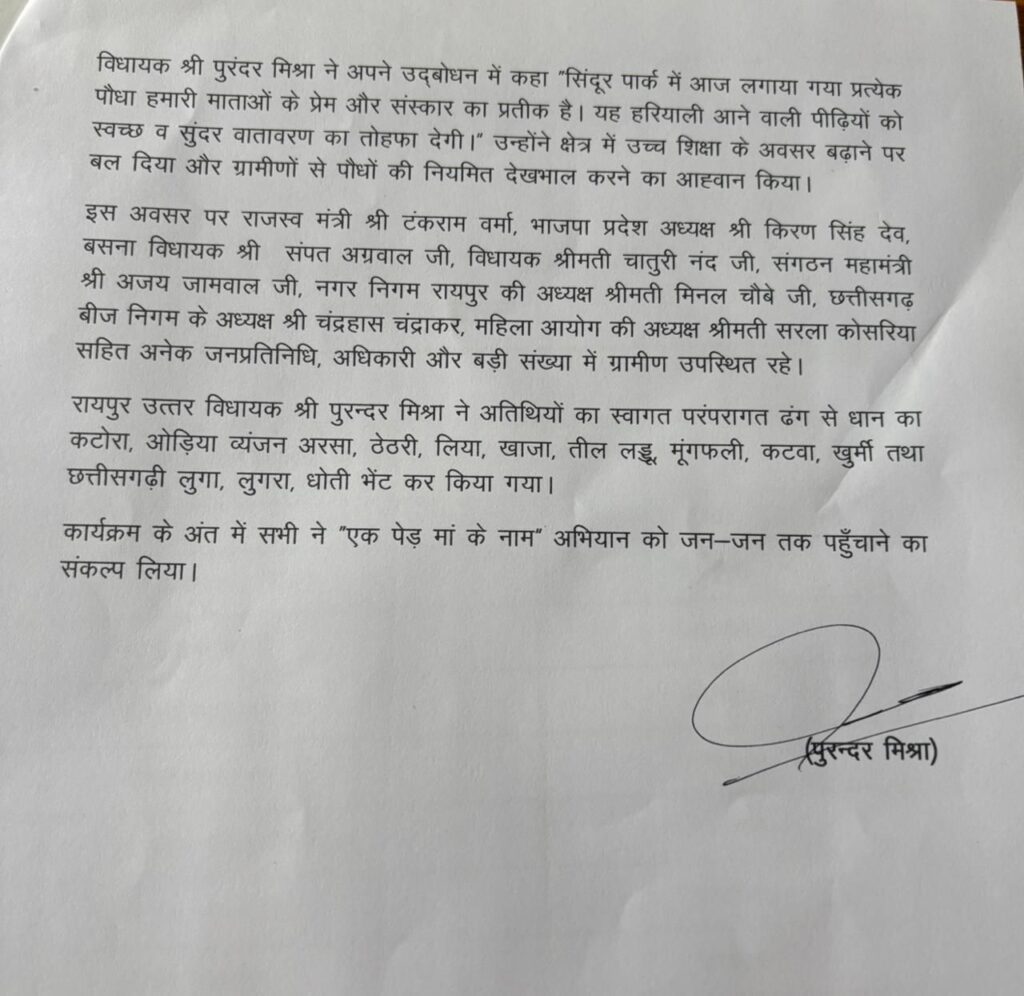 विधायक श्री पुरंदर मिश्रा ने अपने उद्‌बोधन में कहा "सिंदूर पार्क में आज लगाया गया प्रत्येक
पौधा हमारी माताओं के प्रेम और संस्कार का प्रतीक है। यह हरियाली आने वाली पीढ़ियों को
स्वच्छ व सुंदर वातावरण का तोहफा देगी।" उन्होंने क्षेत्र में उच्च शिक्षा के अवसर बढ़ाने पर
बल दिया और ग्रामीणों से पौधों की नियमित देखभाल करने का आह्वान किया।
इस अवसर पर राजस्व मंत्री श्री टंकराम वर्मा, भाजपा प्रदेश अध्यक्ष श्री किरण सिंह देव,
बसना विधायक श्री संपत अग्रवाल जी, विधायक श्रीमती चातुरी नंद जी, संगठन महामंत्री
श्री अजय जामवाल जी, नगर निगम रायपुर की अध्यक्ष श्रीमती मिनल चौबे जी, छत्तीसगढ़
बीज निगम के अध्यक्ष श्री चंद्रहास चंद्राकर, महिला आयोग की अध्यक्ष श्रीमती सरला कोसरिया
सहित अनेक जनप्रतिनिधि, अधिकारी और बड़ी संख्या में ग्रामीण उपस्थित रहे।
रायपुर उत्तर विधायक श्री पुरन्दर मिश्रा ने अतिथियों का स्वागत परंपरागत ढंग से धान का
कटोरा, ओड़िया व्यंजन अरसा, ठेठरी, लिया, खाजा, तील लड्डू, मूंगफली, कटवा, खुर्मी तथा
छत्तीसगढ़ी लुगा, लुगरा, धोती भेंट कर किया गया।
कार्यक्रम के अंत में सभी ने "एक पेड़ मां के नाम" अभियान को जन–जन तक पहुँचाने का
संकल्प लिया।
(पुरन्दर मिश्रा)